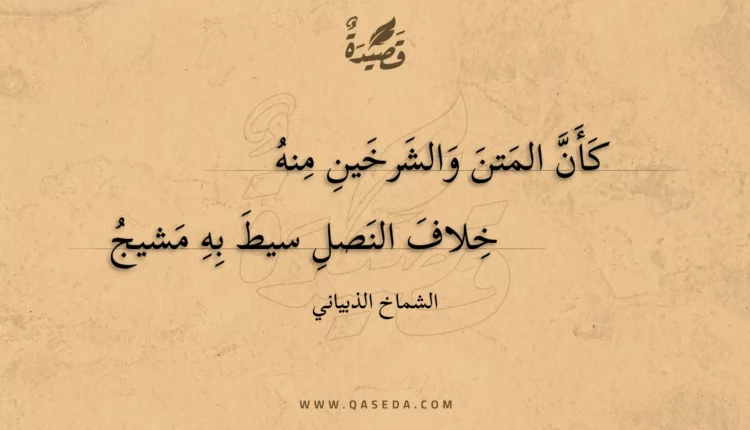 قَصِيْدَةٌ
كَأَنَّ المَتنَ وَالشَرخَينِ مِنهُ
خِلافَ النَصلِ سيطَ بِهِ مَشيجُ
الشماخ الذبياني
WWW.QASEDA.COM